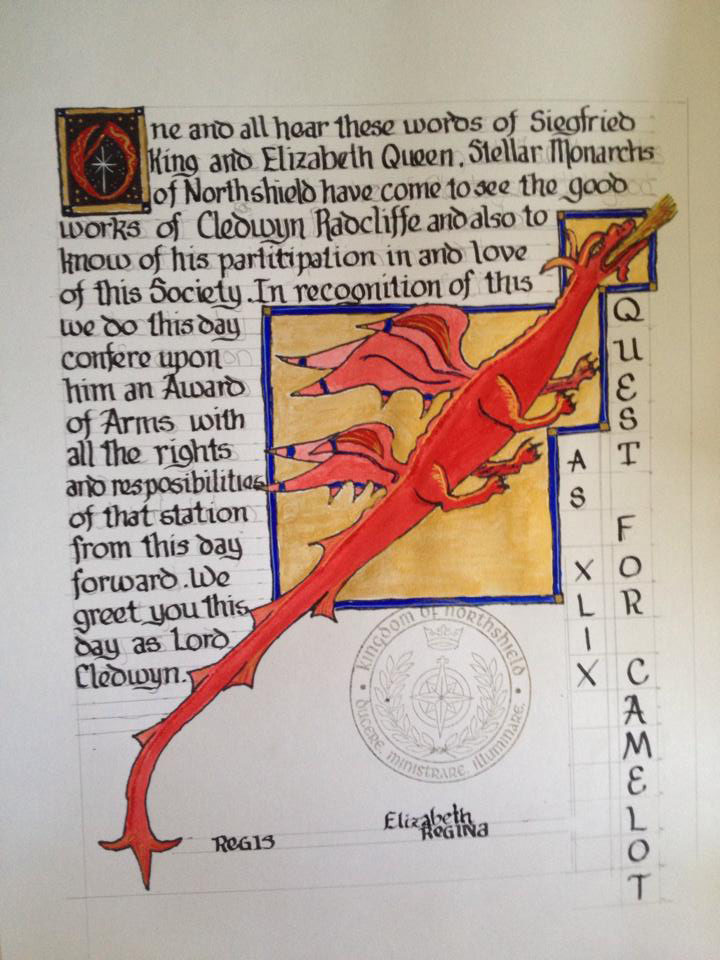 One and all hear these words of Siegfried
King and Elizabeth Queen. Stellar Monarchs
of Northshield have come to see the good
works of Cledwyn Radcliffe and also to
know of his partitipation in and love
of this Society. In recognition of this
we do this day
confere upon
him an Award
of Arms with
all the rights
and resposibilities
of that station
from this day
forward. We
greet you this
day as Lord
Cledwyn.
QUEST FOR CAMELOT
AS XLIX
Kingdom of Northshield
Ducere, Ministrare, Illuminare.
Regis
Elizabeth
Regina